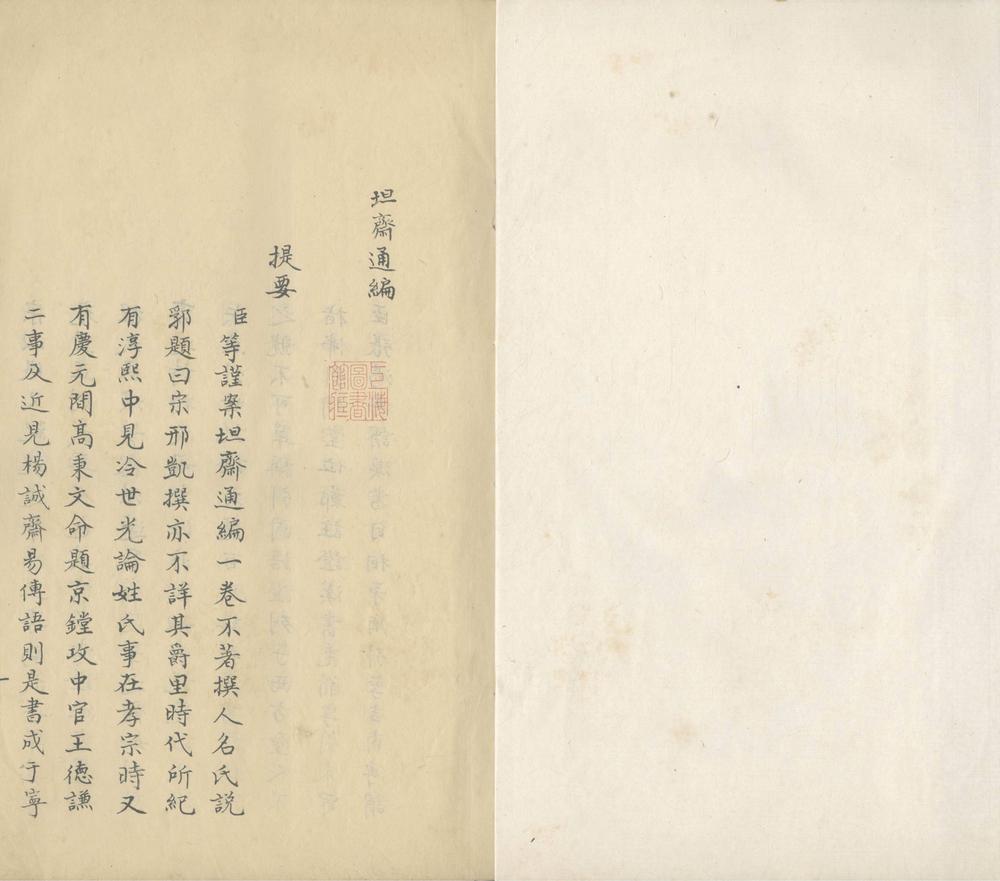 坦齋通編
提要
臣等謹案坦齋通編一卷不著撰人名氏說
郛題曰宋邢凱撰亦不詳其爵里時代所紀
有淳熙中見冷世光論姓氏事在孝宗時又
有慶元間高秉文命題京鏜攻中官王德謙
二事及近見楊誠齋易傳語則是書成于寧